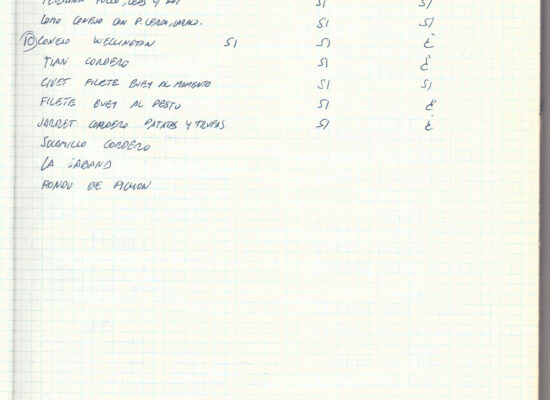 POLLO, SI SI
LOMO CONEJO CON SI SI
10 CONEJO WELLINGTON SI SI ¿
TIAN CORDERO SI ¿
CIVET FILETE BUEY AL MOMENTO SI SI
FILETE BUEY AL PESTO SI ¿
JARRET CORDERO PATATAS Y TRUFAS SI ¿
SOLOMILLO CORDERO
LA
DE PICHON